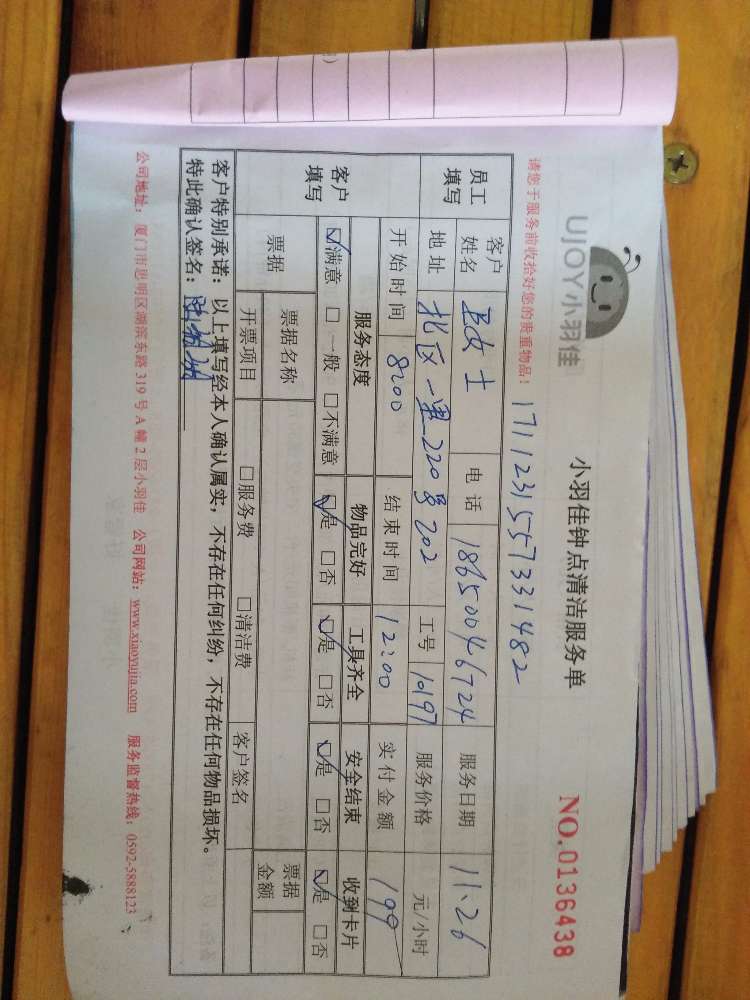 UJOY小羽佳
小羽佳钟点清洁服务单
NO.0136438
请您于服务前收拾好您的贵重物品!
1711231557331482
员工填写 客户姓名 女士 电话 18650046724 服务日期 11.26
地址 北区一里220号202 工号 10197 服务价格 元/小时
开始时间 8:00 结束时间 12:00 实付金额 199
客户填写 服务态度 物品完好 工具齐全 安全结束 收到卡片
☑满意 □一般 □不满意 ☑是 □否 ☑是 □否 ☑是 □否 ☑是 □否
票据 票据名称 票据金额
开票项目 □服务费 □清洁费 客户签名
客户特别承诺:以上填写经本人确认属实,不存在任何纠纷,不存在任何物品损坏。
特此确认签名:
公司地址:厦门市思明区湖滨东路319号A幢2层小羽佳 公司网站:www.xiaoyujia.com 服务监督热线:0592-5888123